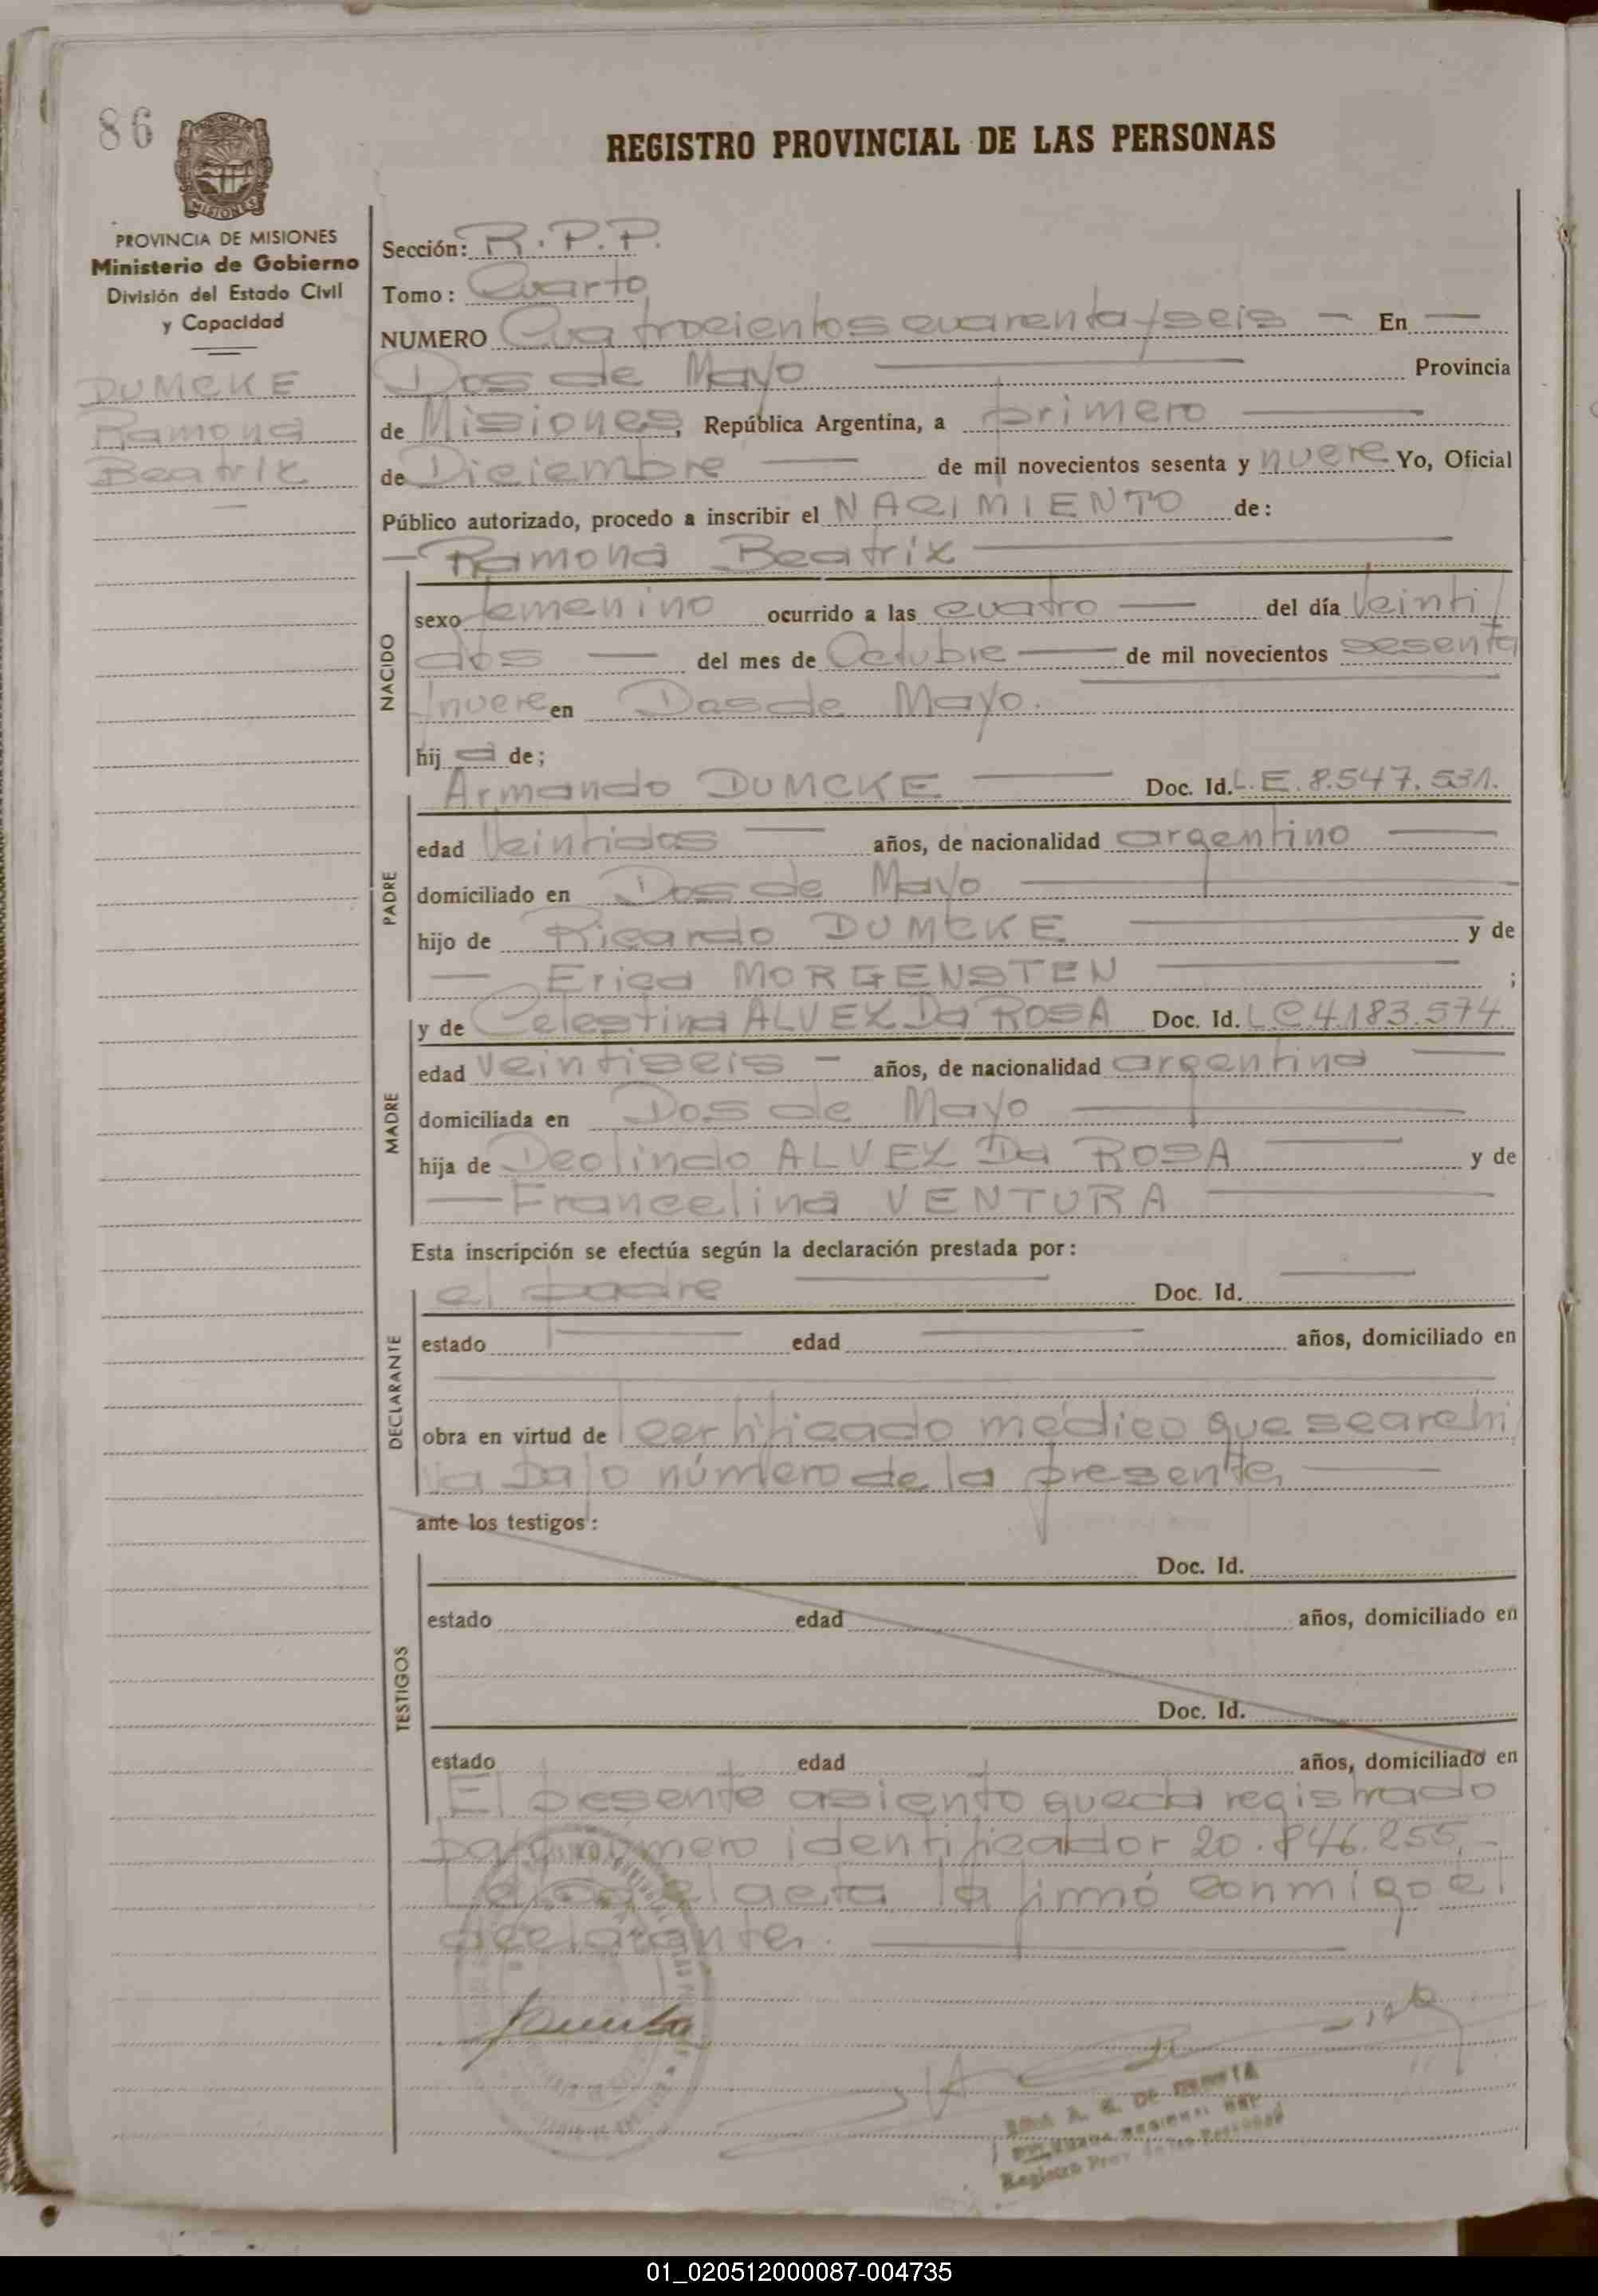 86
MISIONES
REGISTRO PROVINCIAL DE LAS PERSONAS
PROVINCIA DE MISIONES
Ministerio de Gobierno
División del Estado Civil
y Capacidad
DUMCKE
Ramona
Beatrix
Sección: R.P.P.
Tomo: Cuarto
NUMERO Cuatrocientos cuarenta y seis — En —
Dos de Mayo — Provincia
de Misiones, República Argentina, a primero —
de Diciembre — de mil novecientos sesenta y nueve Yo, Oficial
Público autorizado, procedo a inscribir el NACIMIENTO de:
— Ramona Beatrix —
NACIDO
sexo femenino ocurrido a las cuatro — del día Veinti
dos — del mes de Octubre — de mil novecientos sesenta
y nueve en Dos de Mayo.
hij a de;
PADRE
Armando DUMCKE — Doc. Id. L.E. 8.547.531.
edad Veintidos — años, de nacionalidad argentino —
domiciliado en Dos de Mayo —
hijo de Ricardo DUMCKE — y de
— Erica MORGENSTEN — ;
MADRE
y de Celestina ALVEZ Da ROSA Doc. Id. L C 4.183.574
edad veintiseis — años, de nacionalidad argentina —
domiciliada en Dos de Mayo —
hija de Deolindo ALVEZ Da ROSA — y de
— Francelina VENTURA —
Esta inscripción se efectúa según la declaración prestada por:
DECLARANTE
el padre — Doc. Id. —
estado — edad — años, domiciliado en
obra en virtud de certificado médico que se archi
va bajo número de la presente, —
ante los testigos:
TESTIGOS
Doc. Id.
estado edad años, domiciliado en
Doc. Id.
estado edad años, domiciliado en
El presente asiento queda registrado
bajo número identificador 20.846.255, —
Leída el acta la firmó conmigo el
declarante. —
Registro Prov. de las Personas
01_020512000087-004735